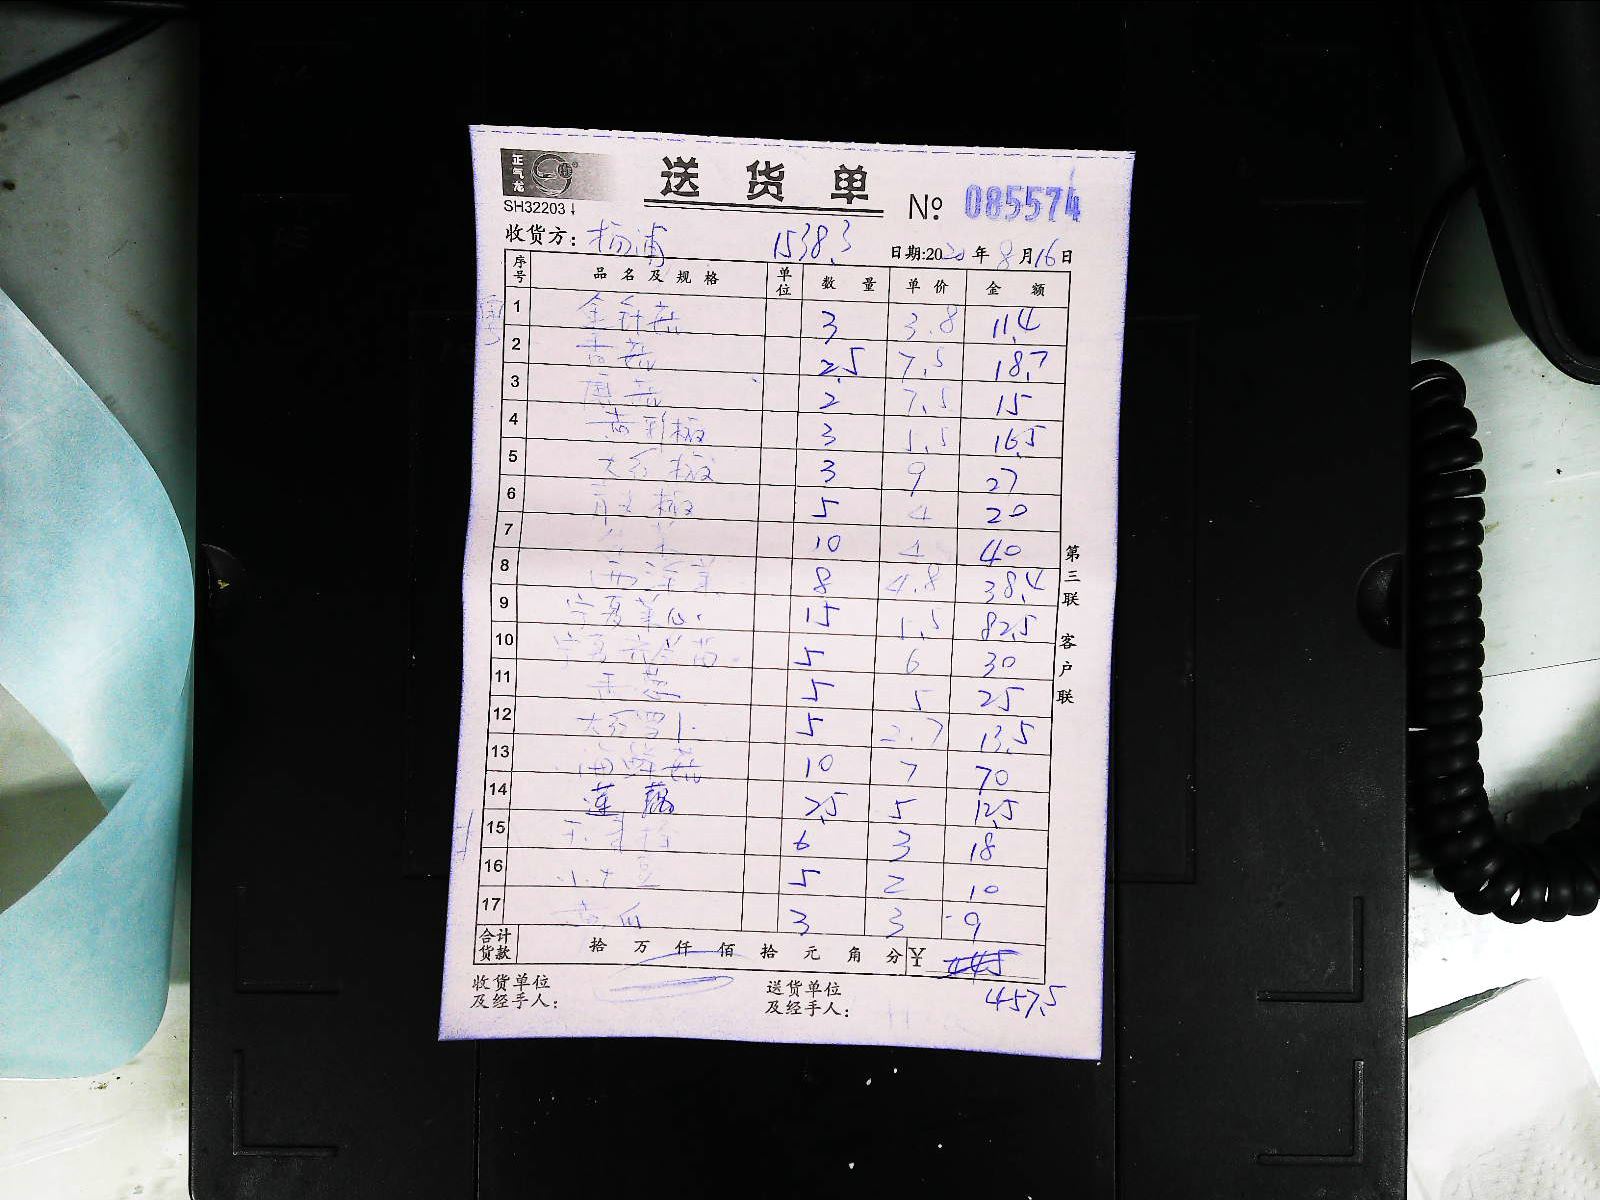 正气龙
送货单
№ 085574
SH32203
收货方：杨浦 1538.3 日期:2020年8月16日
序号 品名及规格 单位 数量 单价 金额
1 金针菇 3 3.8 11.4
2 香菇 2.5 7.5 18.7
3 菇 2 7.5 15
4 黄彩椒 3 5.5 16.5
5 大红椒 3 9 27
6 青椒 5 4 20
7 10 4 40
8 西 8 4.8 38.4
9 宁夏菜心 15 5.5 82.5
10 宁夏 苗 5 6 30
11 5 5 25
12 大红罗卜 5 2.7 13.5
13 海鲜菇 10 7 70
14 莲藕 2.5 5 12.5
15 6 3 18
16 小土豆 5 2 10
17 黄瓜 3 3 9
合计货款 拾 万 仟 佰 拾 元 角 分 ¥
457.5
收货单位及经手人：
送货单位及经手人：
第三联 客户联